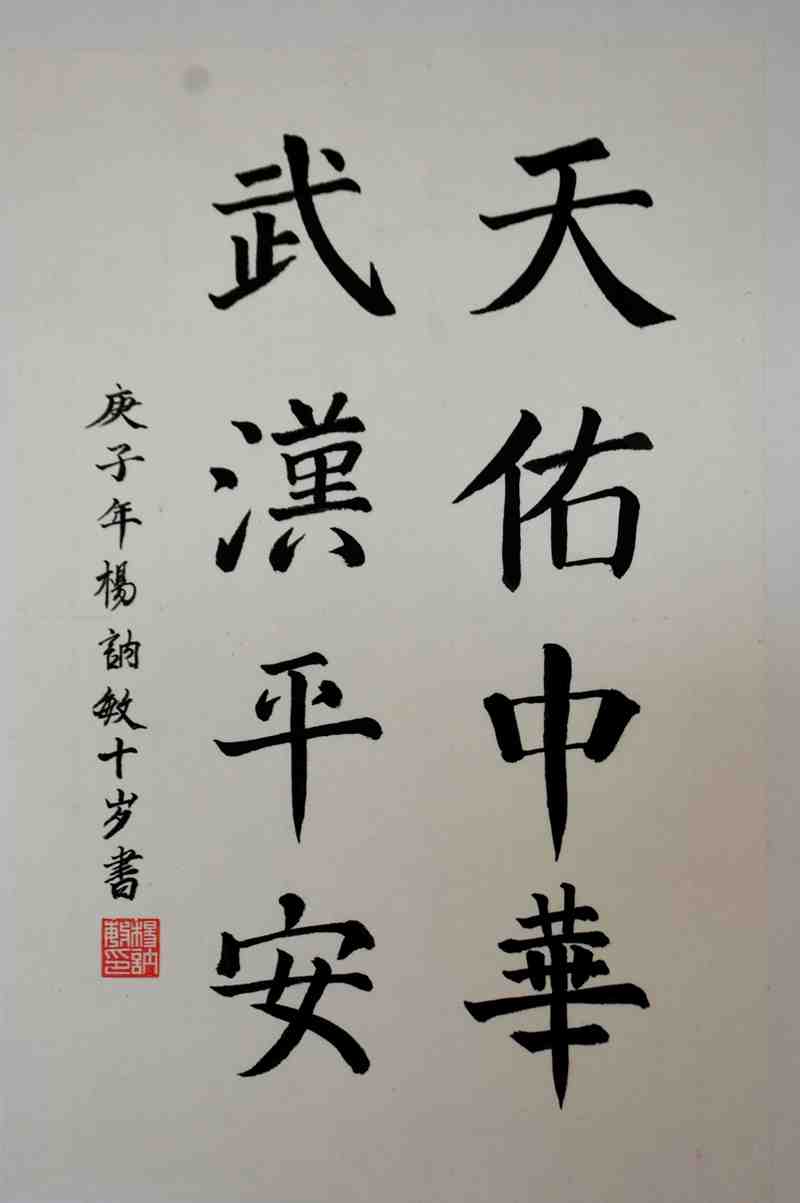 天佑中華
武漢平安
庚子年楊訥敏十岁書
楊訥敏印